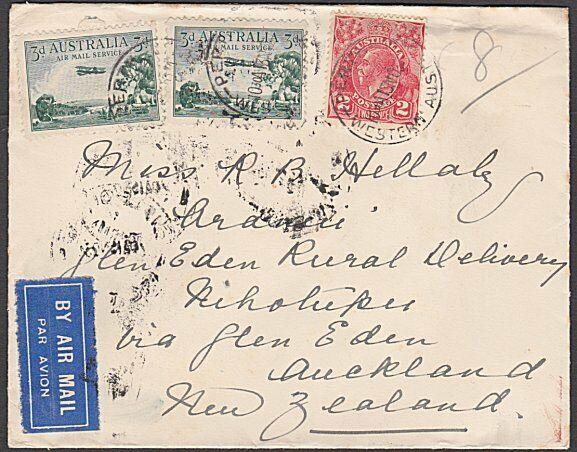 3d AUSTRALIA
AIR MAIL SERVICE
3d AUSTRALIA 3d
AIR MAIL SERVICE
AUSTRALIA
2 POSTAGE 2
TWO PENCE
PERTH
WESTERN AUST
8
Miss R B Hellaby
Glen Eden Rural Delivery
Nihotupu
via Glen Eden
Auckland
New Zealand.
BY AIR MAIL
PAR AVION